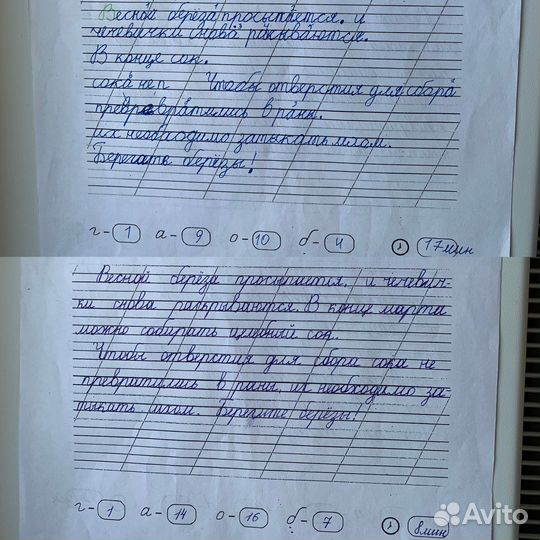 Весной берёза просыпается. и
чечевички снова раскываются.
В конце сок.
сока неп Чтобы отверстия для сбора
превревратились в раны.
их необходимо затыкать мхом.
Берегите берёзы!
г- 1 а- 9 о- 10 б- 4 17 мин
Весной берёза просыпается, и чечевич-
ки снова раскрываются. В конце марта
можно собирать целебный сок.
Чтобы отверстия для сбора сока не
превратились в раны, их необходимо за-
тыкать мхом. Берегите берёзы!
г- 1 а- 14 о- 16 б- 7 8 мин
Avito